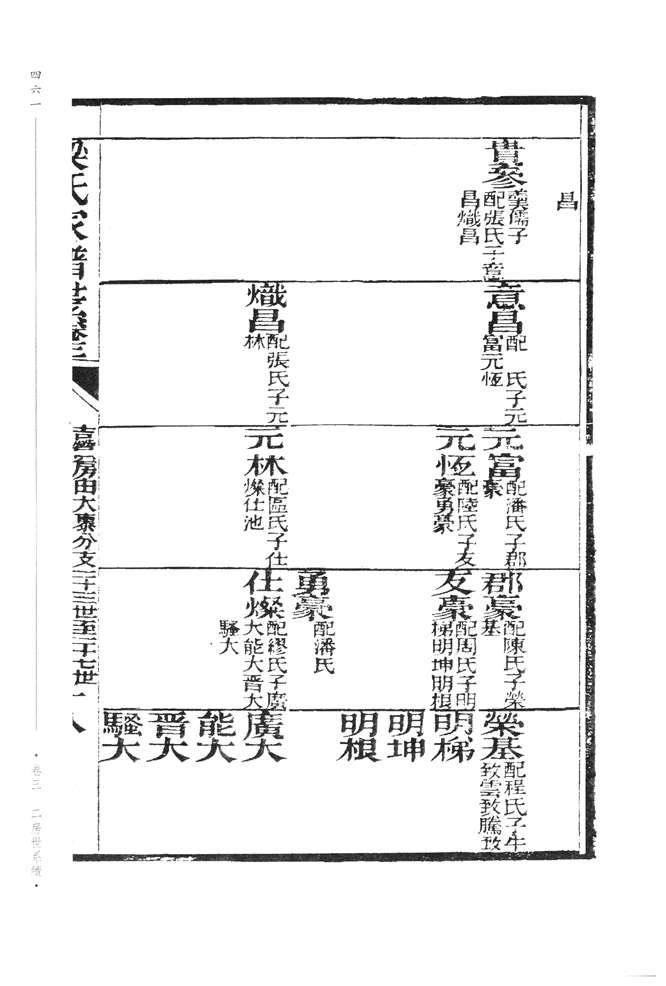 昌
貴參
美儒子
配張氏子意
昌熾昌
意昌
配　氏子元
富元恆
熾昌
配張氏子元
林
元富
配潘氏子郡
豪
元恆
配陸氏子友
豪勇豪
元林
配區氏子仕
燦仕池
郡豪
配陳氏子榮
基
友豪
配周氏子明
梯明坤明根
勇豪
配潘氏
仕燦
配繆氏子廣
大能大晋大
騷大
榮基
配程氏子牛
致雲致騰致
明梯
明坤
明根
廣大
能大
晋大
騷大
梁氏家譜世系卷三
喜房由大康分支二十三世至二十七世
十八
四六一
卷三　二房世系續